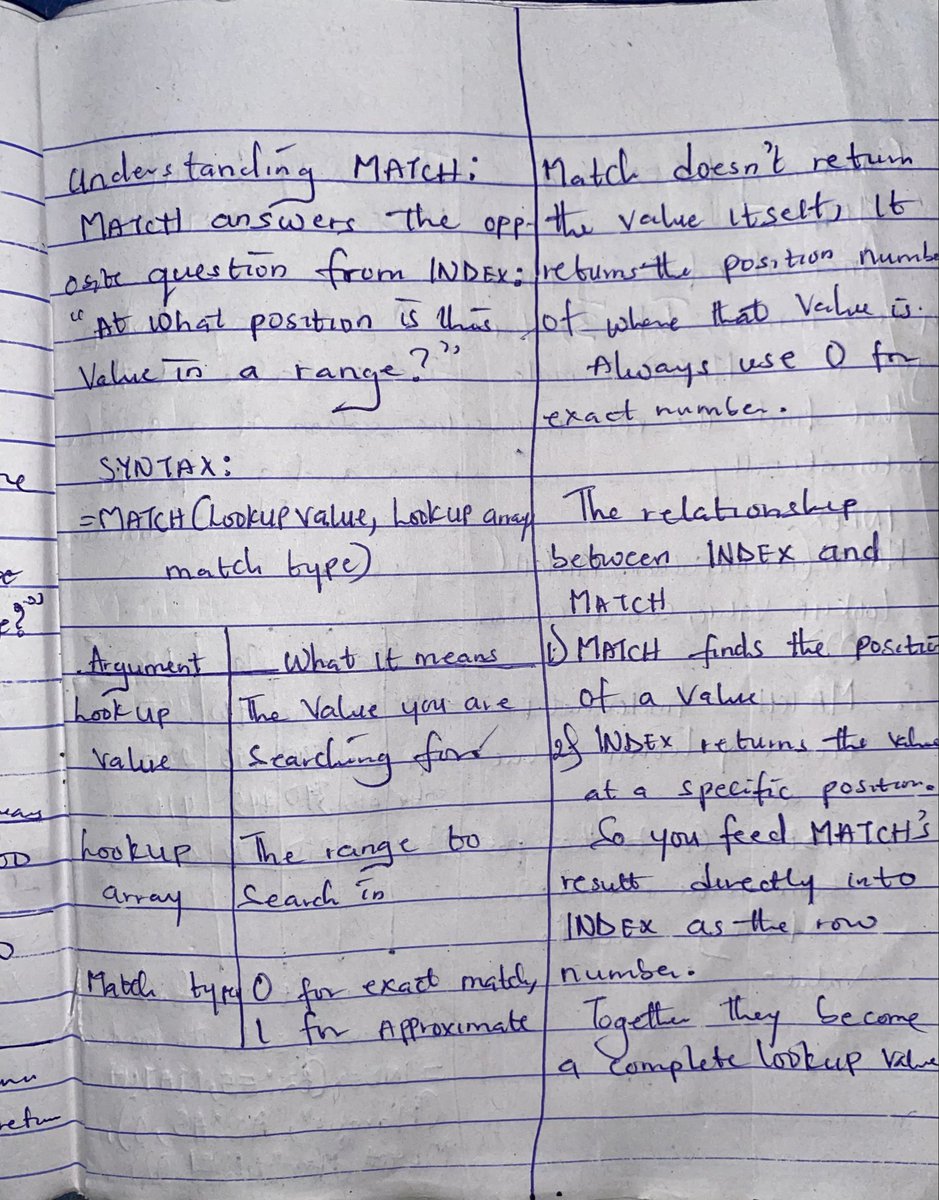 Understanding MATCH:
MATCH answers the opp-
osite question from INDEX:
"At what position is this
Value in a range?"
SYNTAX:
=MATCH(Lookup value, Lookup array
match type)
Argument What it means
Lookup The Value you are
value Searching for
Lookup The range to
array Search in
Match type 0 for exact match,
1 for Approximate
Match doesn't return
the value itself, It
returns the position numbe
of where that Value is.
Always use 0 for
exact number.
The relationship
between INDEX and
MATCH
1) MATCH finds the positio
of a value
2) INDEX returns the value
at a specific position.
So you feed MATCH's
result directly into
INDEX as the row
number.
Together they become
a complete lookup value
re
e?"
OD
retur